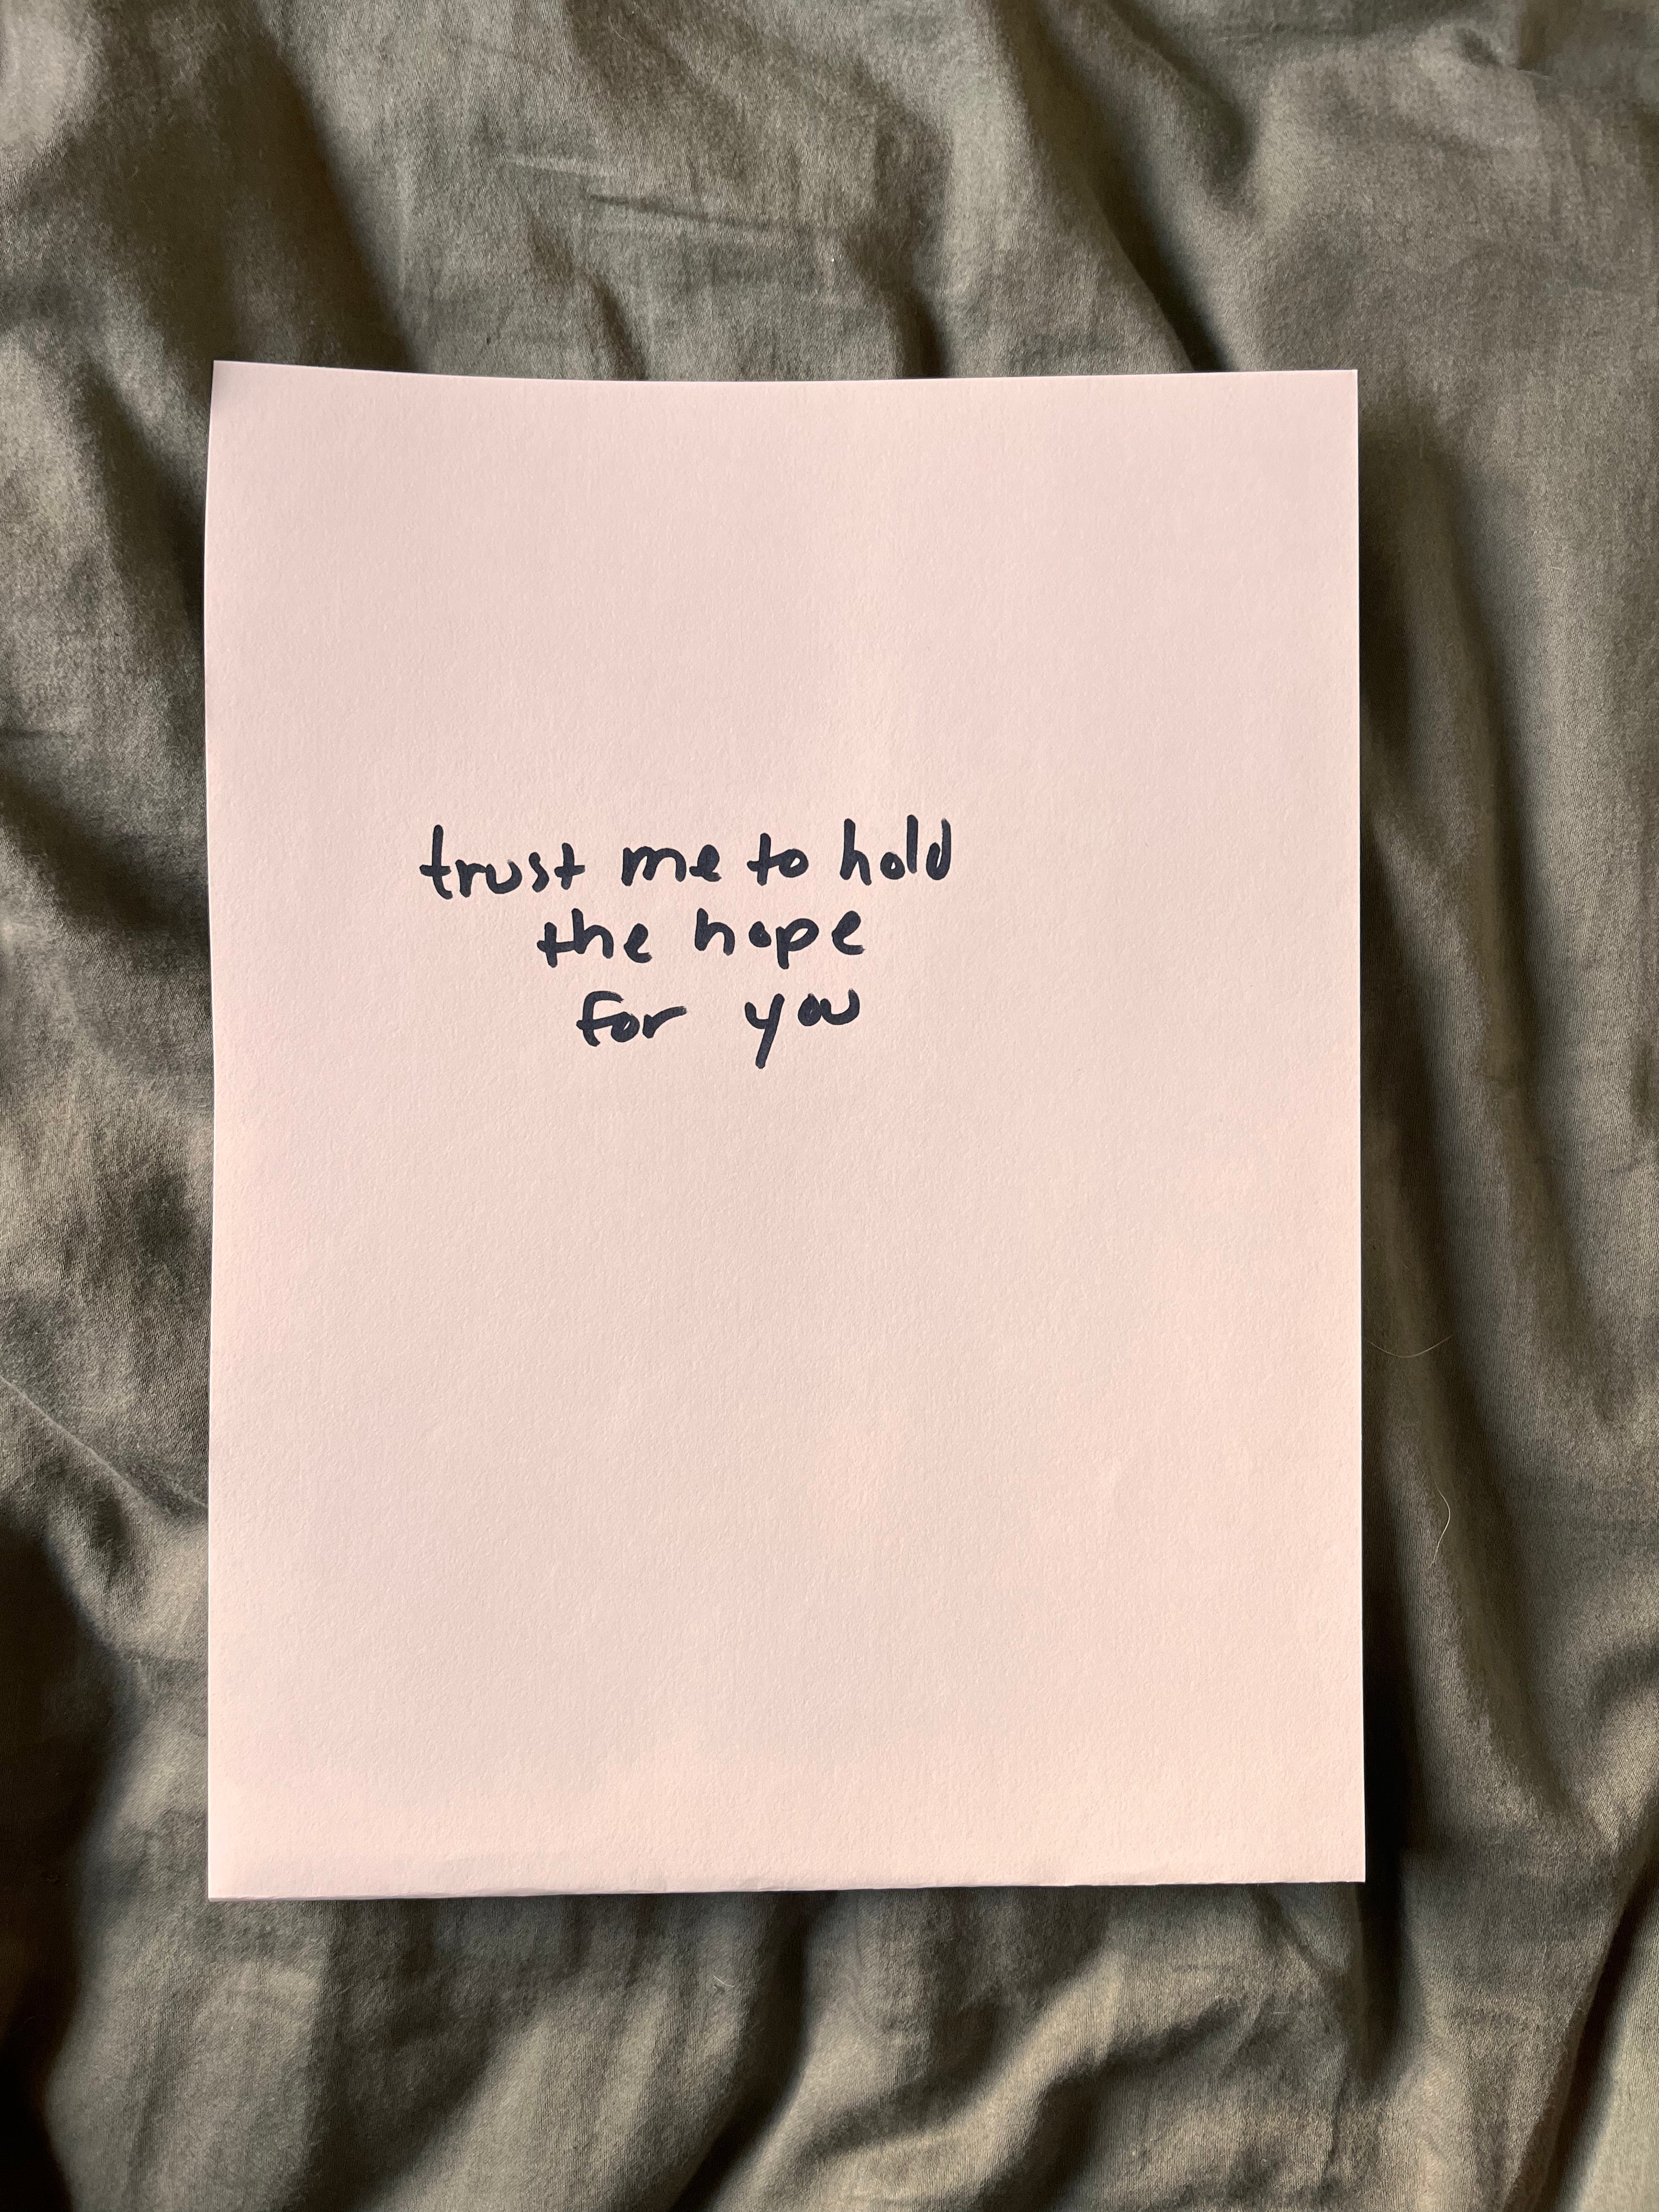 trust me to hold
the hope
for you